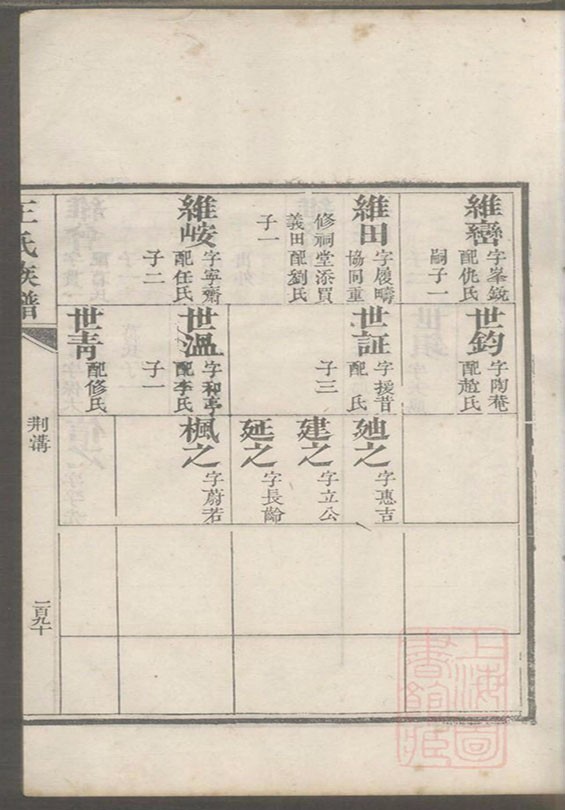 維巒
字峯銳
配仇氏
嗣子一
維田
字履疇
協同重
修祠堂添買
義田配劉氏
子一
維峖
字寧齋
配任氏
子二
世鈞
字陶菴
配趙氏
世証
字援昔
配 氏
子三
世溫
字和亭
配李氏
子一
世青
配修氏
廸之
字惠吉
建之
字立公
延之
字長齡
楓之
字蔚若
王氏族譜
荆溝
一百九十
上海圖書館藏